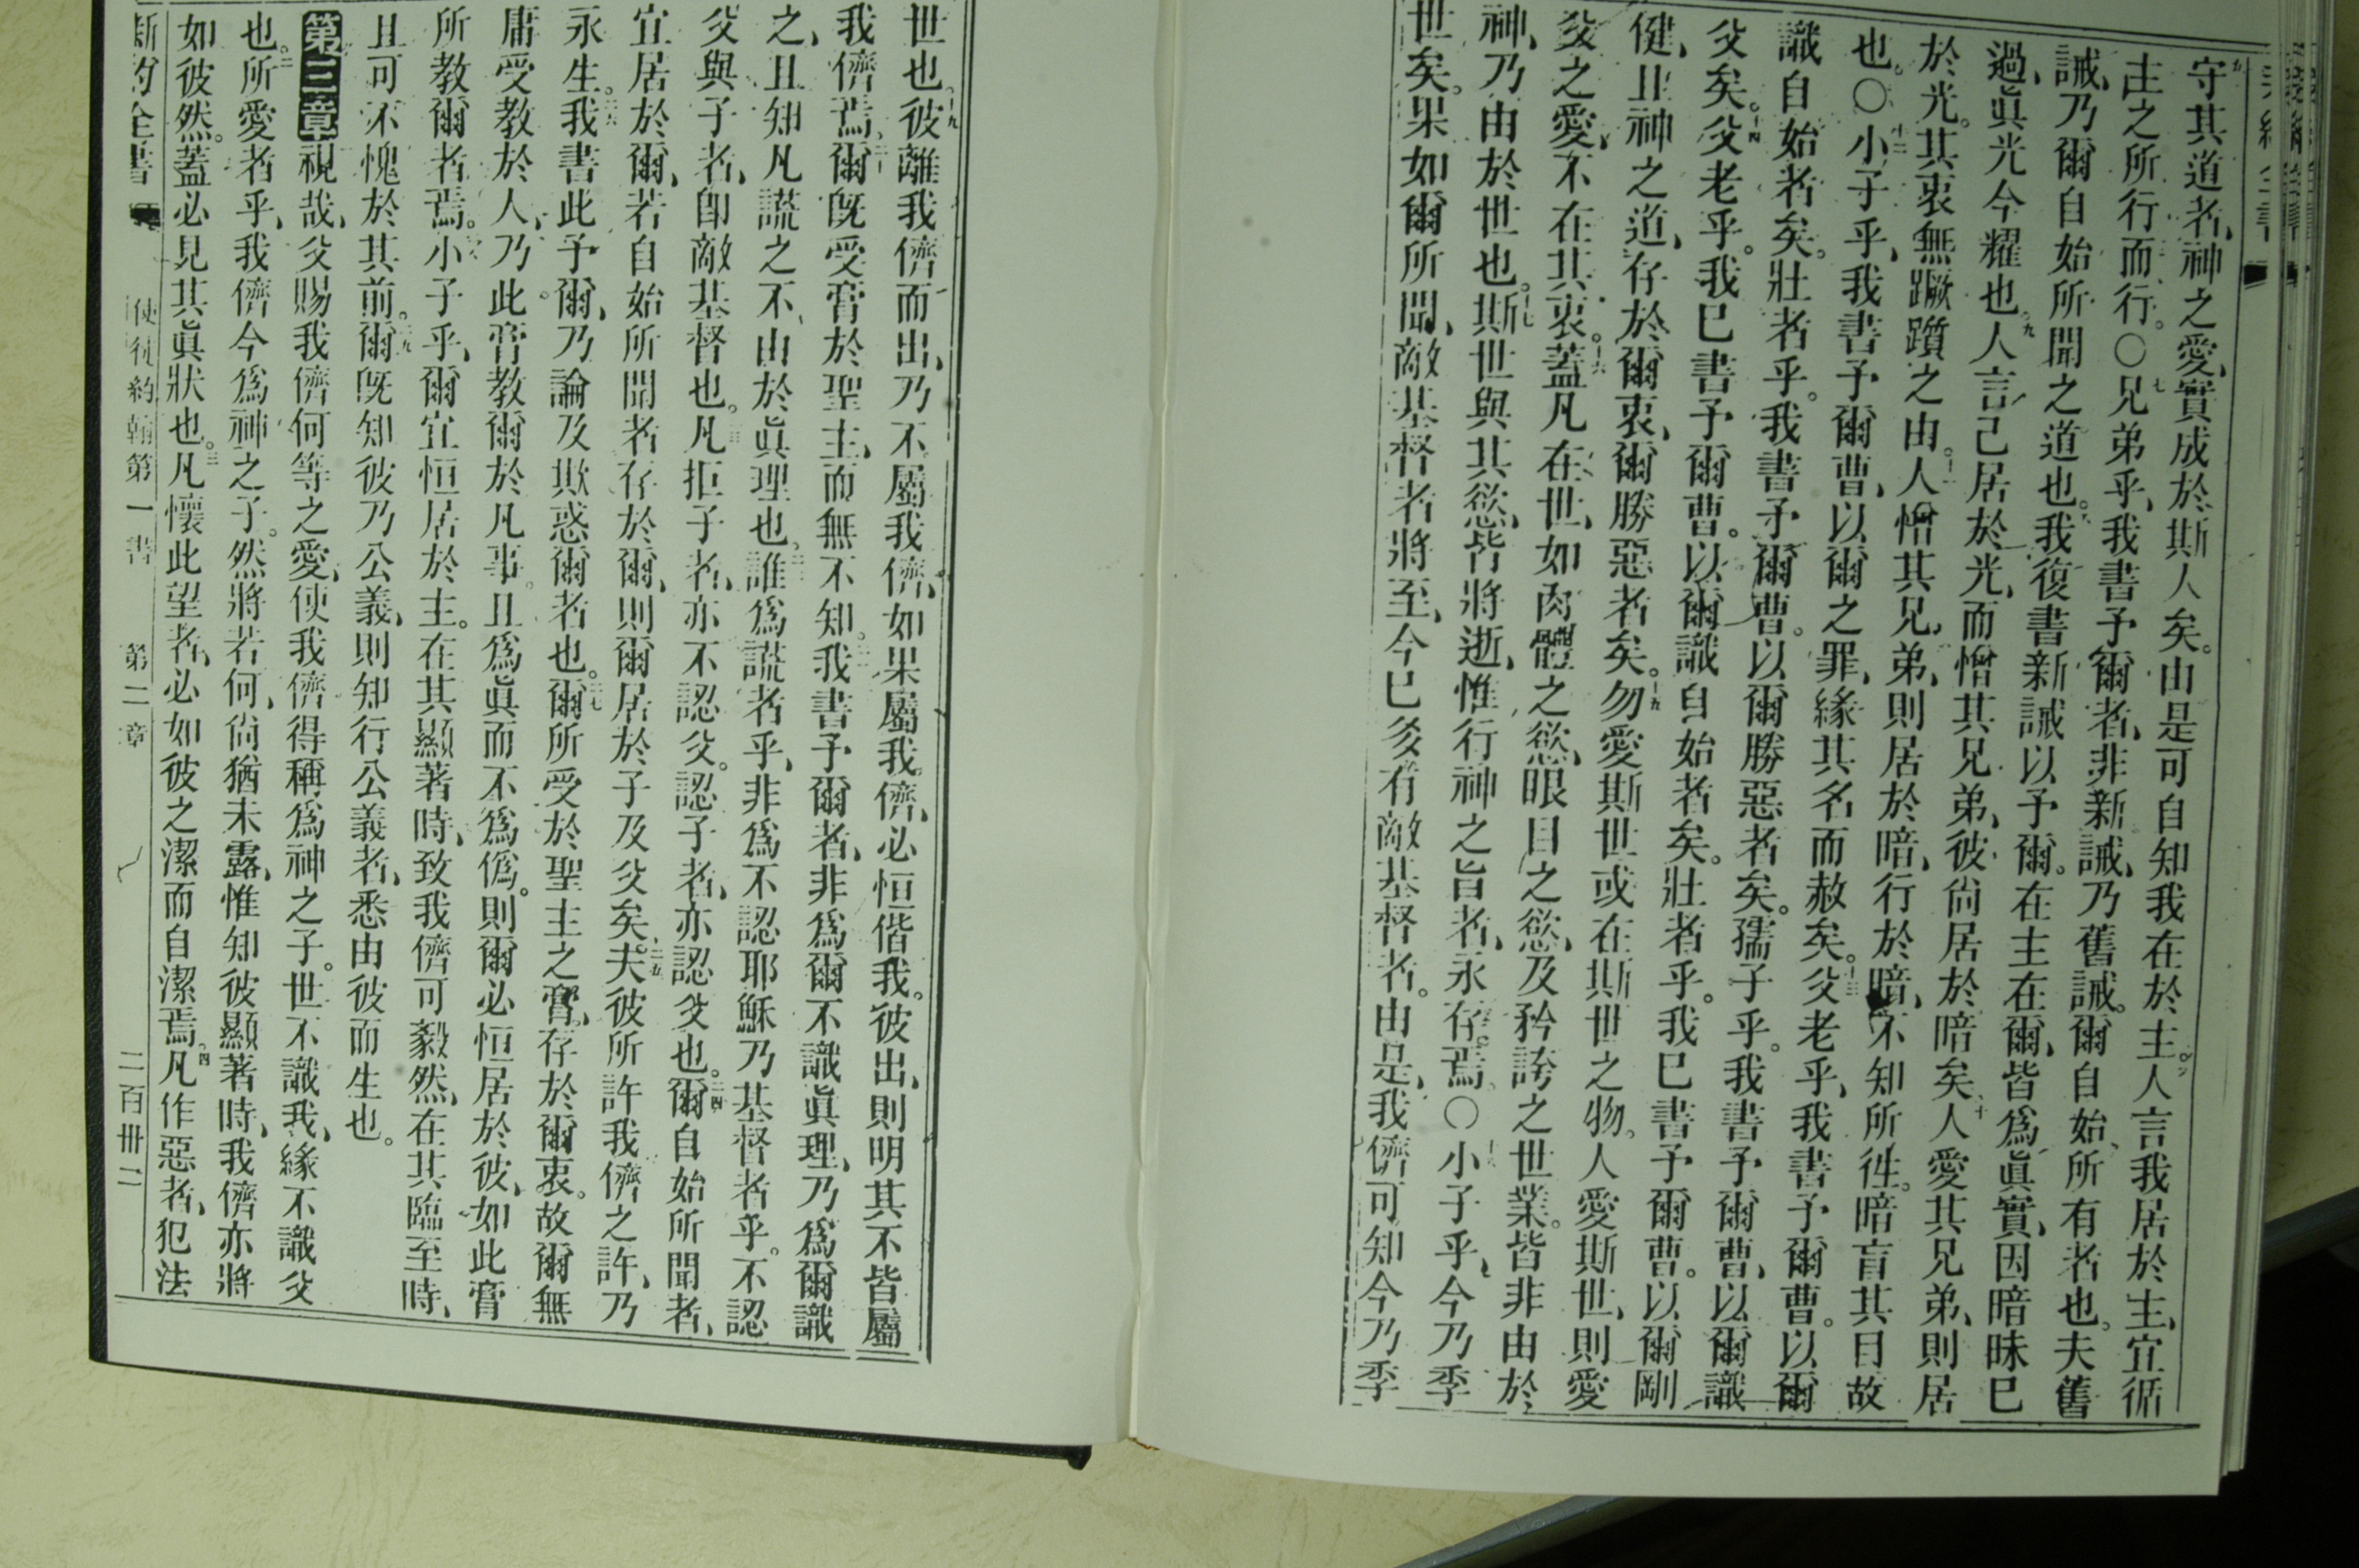 守其道者、神之愛、實成於斯人矣。由是可自知我在於主。人言我居於主、宜循
主之所行而行。○兄弟乎、我書予爾者、非新誡、乃舊誡。爾自始、所有者也。夫舊
誡、乃爾自始所聞之道也。我復書新誡以予爾。在主在爾、皆爲眞實、因暗昧已
過、眞光今耀也。人言己居於光、而憎其兄弟、彼尙居於暗矣。人愛其兄弟、則居
於光。其衷無蹶躓之由。人憎其兄弟、則居於暗、行於暗、不知所徃。暗盲其目故
也。○小子乎、我書予爾曹、以爾之罪、緣其名而赦矣。父老乎、我書予爾曹。以爾
識自始者矣。壯者乎。我書予爾曹。以爾勝惡者矣。孺子乎。我書予爾曹、以爾識
父矣。父老乎。我已書予爾曹。以爾識自始者矣。壯者乎。我已書予爾曹。以爾剛
健、且神之道、存於爾衷、爾勝惡者矣。勿愛斯世或在斯世之物。人愛斯世、則愛
父之愛、不在其衷。蓋凡在世、如肉體之慾、眼目之慾、及矜誇之世業。皆非由於
神、乃由於世也。斯世與其慾、皆將逝、惟行神之旨者、永存焉。○小子乎、今乃季
世矣。果如爾所聞、敵基督者將至、今已多有敵基督者。由是、我儕可知今乃季
世也。彼離我儕而出、乃不屬我儕、如果屬我儕、必恒偕我。彼出、則明其不皆屬
我儕焉。爾旣受膏於聖主、而無不知。我書予爾者、非爲爾不識眞理、乃爲爾識
之、且知凡謊之不由於眞理也。誰爲謊者乎、非爲不認耶穌乃基督者乎。不認
父與子者、卽敵基督也。凡拒子者、亦不認父。認子者、亦認父也。爾自始所聞者、
宜居於爾、若自始所聞者存於爾、則爾居於子及父矣。夫彼所許我儕之許、乃
永生。我書此予爾、乃論及欺惑爾者也。爾所受於聖主之膏、存於爾衷。故爾無
庸受教於人、乃此膏教爾於凡事。且爲眞而不爲僞。則爾必恒居於彼、如此膏
所教爾者焉。小子乎、爾宜恒居於主。在其顯著時、致我儕可毅然、在其臨至時、
且可不愧於其前。爾旣知彼乃公義、則知行公義者、悉由彼而生也。
第三章視哉、父賜我儕何等之愛、使我儕得稱爲神之子。世不識我、緣不識父
也。所愛者乎、我儕今爲神之子。然將若何、尙猶未露、惟知彼顯著時、我儕亦將
如彼然。蓋必見其眞狀也。凡懷此望者、必如彼之潔而自潔焉。凡作惡者、犯法
新約全書 使徒約翰第一書 第二章 二百卅二